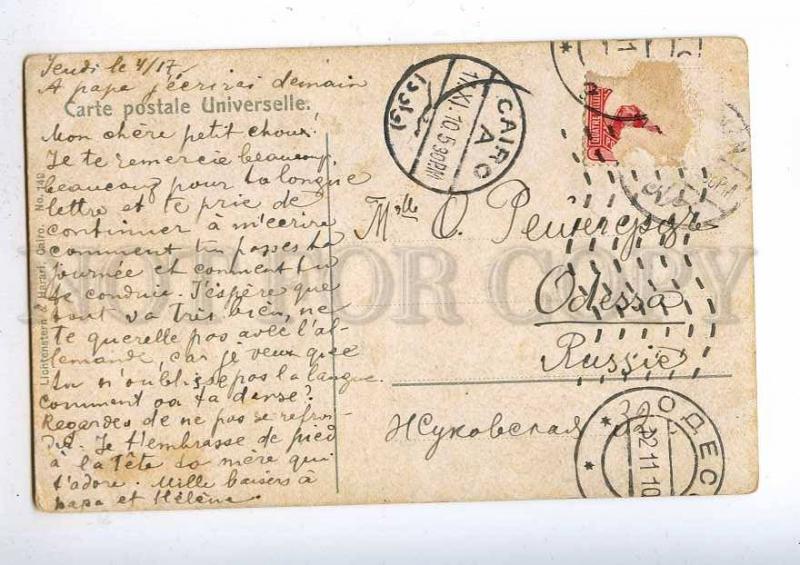 Jeudi le 4/17
A papa j'écrirai demain
Carte postale Universelle.
Mon chère petit choux!
Je te remercie beaucoup,
beaucoup pour ta longue
lettre et te prie de
continuer à m'écrire
comment tu passes ta
journée et comment tu
te conduis. J'espère que
tout va très bien, ne
te querelle pas avec l'al-
lemande, car je veux que
tu n'oublisse pas la langue.
Comment va ta danse?
Regardes de ne pas se refroi-
dir. Je t'embrasse de pied
à la tête ta mère qui
t'adore. Mille baisers à
papa et Hélène.
Lichtenstern & Harari, Cairo. No. 149
CAIRO
A
11.XI.10.5.30PM
QUATRE
Mlle O. Рейнгерцъ
Odessa
Russie
Жуковская 32
ОДЕСС
22.11.10
NOT FOR COPY